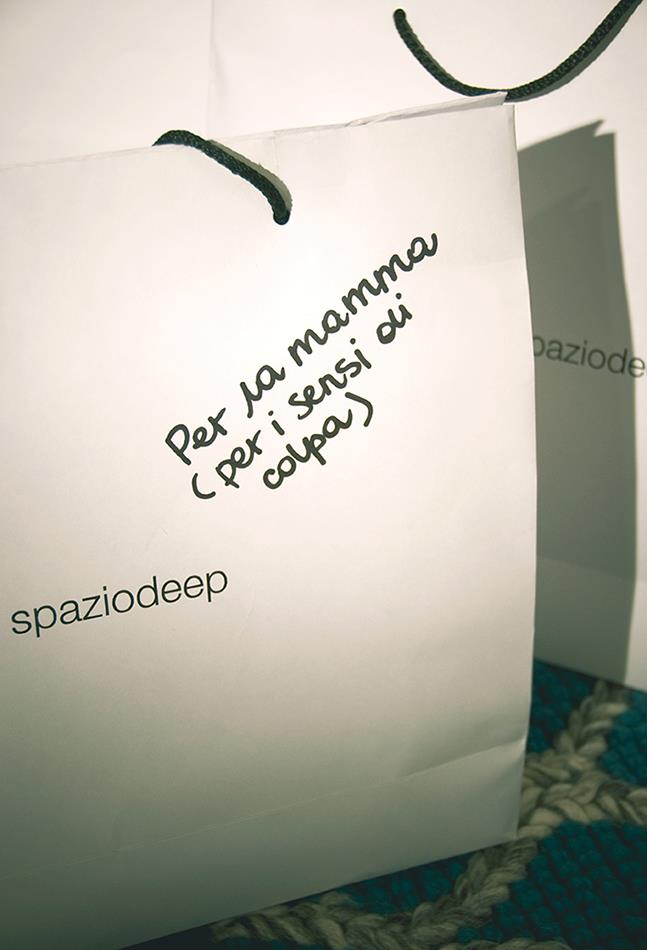 Per la mamma
(per i sensi di
colpa)
spaziodeep
paziode